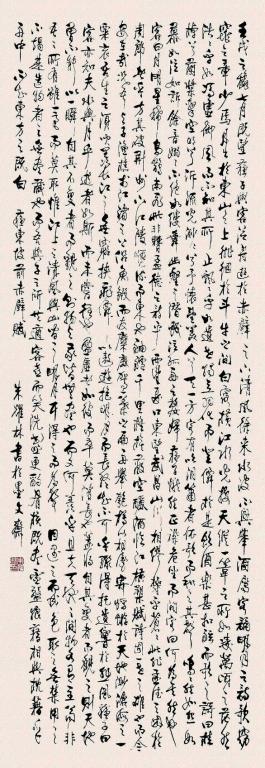 壬戌之秋七月既望蘇子與客泛舟遊於赤壁之下清風徐來水波不興舉酒屬客誦明月之詩歌窈
窕之章少焉月出於東山之上徘徊於斗牛之間白露橫江水光接天縱一葦之所如凌萬頃之茫然
浩浩乎如馮虛御風而不知其所止飄飄乎如遺世獨立羽化而登仙於是飲酒樂甚扣舷而歌之歌曰桂
棹兮蘭槳擊空明兮泝流光渺渺兮予懷望美人兮天一方客有吹洞簫者倚歌而和之其聲嗚嗚然如怨如
慕如泣如訴餘音嫋嫋不絕如縷舞幽壑之潛蛟泣孤舟之嫠婦蘇子愀然正襟危坐而問客曰何為其然也
客曰月明星稀烏鵲南飛此非曹孟德之詩乎西望夏口東望武昌山川相繆鬱乎蒼蒼此非孟德之困於
周郎者乎方其破荊州下江陵順流而東也舳艫千里旌旗蔽空釃酒臨江橫槊賦詩固一世之雄也而今
安在哉況吾與子漁樵於江渚之上侶魚蝦而友麋鹿駕一葉之扁舟舉匏樽以相屬寄蜉蝣於天地渺滄海之一
粟哀吾生之須臾羨長江之無窮挾飛仙以遨遊抱明月而長終知不可乎驟得託遺響於悲風蘇子曰
客亦知夫水與月乎逝者如斯而未嘗往也盈虛者如彼而卒莫消長也蓋將自其變者而觀之則天地
曾不能以一瞬自其不變者而觀之則物與我皆無盡也而又何羨乎且夫天地之間物各有主苟非
吾之所有雖一毫而莫取惟江上之清風與山間之明月耳得之而為聲目遇之而成色取之無禁用之
不竭是造物者之無盡藏也而吾與子之所共適客喜而笑洗盞更酌肴核既盡杯盤狼藉相與枕藉乎
舟中不知東方之既白 蘇東坡前赤壁賦 朱耀林書於墨文齋